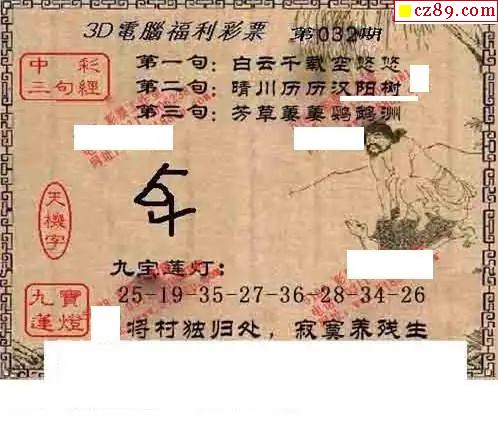 cz89.com
3D電腦福利彩票 第032期
中彩
三句經
第一句：白云千载空悠悠
第二句：晴川历历汉阳树
第三句：芳草萋萋鹦鹉洲
天機字
九宝莲灯：
九寶
蓮燈
25-19-35-27-36-28-34-26
将村独归处，寂寞养残生